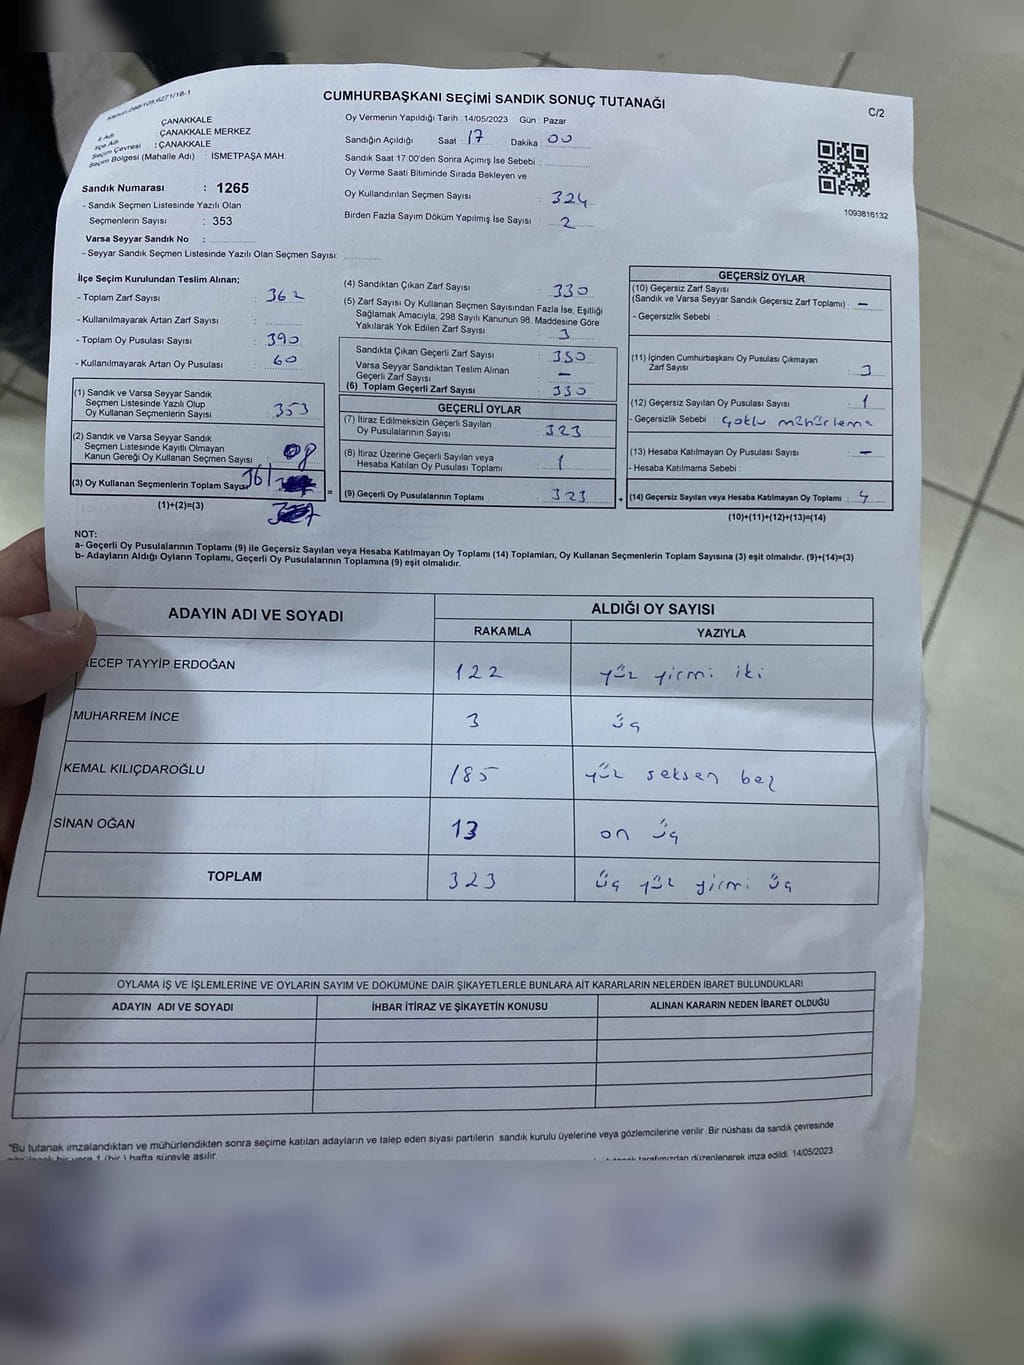 Kanun:298/105;6271/18-1
CUMHURBAŞKANI SEÇİMİ SANDIK SONUÇ TUTANAĞI
C/2
İl Adı : ÇANAKKALE
İlçe Adı : ÇANAKKALE MERKEZ
Seçim Çevresi : ÇANAKKALE
Seçim Bölgesi (Mahalle Adı) : İSMETPAŞA MAH.
Sandık Numarası : 1265
- Sandık Seçmen Listesinde Yazılı Olan
Seçmenlerin Sayısı : 353
Varsa Seyyar Sandık No :
- Seyyar Sandık Seçmen Listesinde Yazılı Olan Seçmen Sayısı:
Oy Vermenin Yapıldığı Tarih : 14/05/2023 Gün : Pazar
Sandığın Açıldığı Saat : 17 Dakika : 00
Sandık Saat 17:00'den Sonra Açımış İse Sebebi :
Oy Verme Saati Bitiminde Sırada Bekleyen ve
Oy Kullandırılan Seçmen Sayısı : 324
Birden Fazla Sayım Döküm Yapılmış İse Sayısı : 2
1093816132
İlçe Seçim Kurulundan Teslim Alınan;
- Toplam Zarf Sayısı : 362
- Kullanılmayarak Artan Zarf Sayısı :
- Toplam Oy Pusulası Sayısı : 390
- Kullanılmayarak Artan Oy Pusulası : 60
(1) Sandık ve Varsa Seyyar Sandık
Seçmen Listesinde Yazılı Olup
Oy Kullanan Seçmenlerin Sayısı : 353
(2) Sandık ve Varsa Seyyar Sandık
Seçmen Listesinde Kayıtlı Olmayan
Kanun Gereği Oy Kullanan Seçmen Sayısı : 08
(3) Oy Kullanan Seçmenlerin Toplam Sayısı 361
(1)+(2)=(3)
(4) Sandıktan Çıkan Zarf Sayısı : 330
(5) Zarf Sayısı Oy Kullanan Seçmen Sayısından Fazla İse, Eşitliği
Sağlamak Amacıyla, 298 Sayılı Kanunun 98. Maddesine Göre
Yakılarak Yok Edilen Zarf Sayısı : 3
Sandıkta Çıkan Geçerli Zarf Sayısı : 330
Varsa Seyyar Sandıktan Teslim Alınan
Geçerli Zarf Sayısı : —
(6) Toplam Geçerli Zarf Sayısı : 330
GEÇERLİ OYLAR
(7) İtiraz Edilmeksizin Geçerli Sayılan
Oy Pusulalarının Sayısı : 323
(8) İtiraz Üzerine Geçerli Sayılan veya
Hesaba Katılan Oy Pusulası Toplamı : 1
= (9) Geçerli Oy Pusulalarının Toplamı : 323
GEÇERSİZ OYLAR
(10) Geçersiz Zarf Sayısı
(Sandık ve Varsa Seyyar Sandık Geçersiz Zarf Toplamı) : —
- Geçersizlik Sebebi :
(11) İçinden Cumhurbaşkanı Oy Pusulası Çıkmayan
Zarf Sayısı : 3
(12) Geçersiz Sayılan Oy Pusulası Sayısı : 1
- Geçersizlik Sebebi : Çoklu mühürleme
(13) Hesaba Katılmayan Oy Pusulası Sayısı : —
- Hesaba Katılmama Sebebi :
+ (14) Geçersiz Sayılan veya Hesaba Katılmayan Oy Toplamı : 4
(10)+(11)+(12)+(13)=(14)
NOT:
a- Geçerli Oy Pusulalarının Toplamı (9) ile Geçersiz Sayılan veya Hesaba Katılmayan Oy Toplamı (14) Toplamları, Oy Kullanan Seçmenlerin Toplam Sayısına (3) eşit olmalıdır. (9)+(14)=(3)
b- Adayların Aldığı Oyların Toplamı, Geçerli Oy Pusulalarının Toplamına (9) eşit olmalıdır.
ADAYIN ADI VE SOYADI ALDIĞI OY SAYISI
RAKAMLA YAZIYLA
RECEP TAYYİP ERDOĞAN 122 yüz yirmi iki
MUHARREM İNCE 3 üç
KEMAL KILIÇDAROĞLU 185 yüz seksen beş
SİNAN OĞAN 13 on üç
TOPLAM 323 üç yüz yirmi üç
OYLAMA İŞ VE İŞLEMLERİNE VE OYLARIN SAYIM VE DÖKÜMÜNE DAİR ŞİKAYETLERLE BUNLARA AİT KARARLARIN NELERDEN İBARET BULUNDUKLARI
ADAYIN ADI VE SOYADI İHBAR İTİRAZ VE ŞİKAYETİN KONUSU ALINAN KARARIN NEDEN İBARET OLDUĞU
*Bu tutanak imzalandıktan ve mühürlendikten sonra seçime katılan adayların ve talep eden siyasi partilerin sandık kurulu üyelerine veya gözlemcilerine verilir .Bir nüshası da sandık çevresinde
bir yere 1 (bir ) hafta süreyle asılır.
tutanak tarafımızdan düzenlenerek imza edildi. 14/05/2023